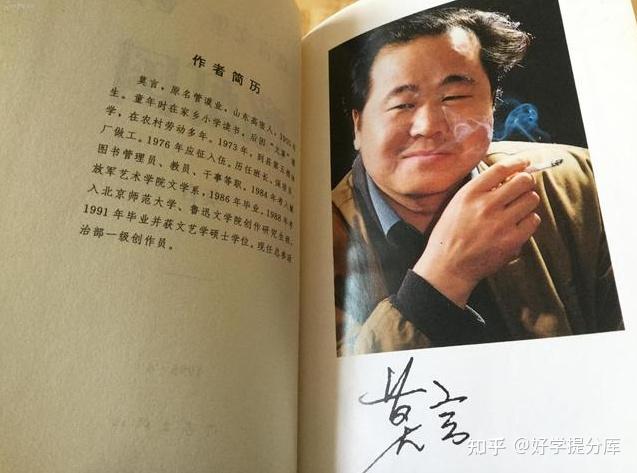 作者简历
莫言，原名管谟业，山东高密人，1955年
生。童年时在家乡小学读书，后因“文革”辍
学，在农村劳动多年。1973年，到县第五棉油
厂做工。1976年应征入伍。历任班长、保密员、
图书管理员、教员、干事等职。1984年考入解
放军艺术学院文学系，1986年毕业。1988年考
入北京师范大学、鲁迅文学院创作研究生班，
1991年毕业并获文艺学硕士学位。现任总参政
治部一级创作员。
莫言
知乎 @好学提分库